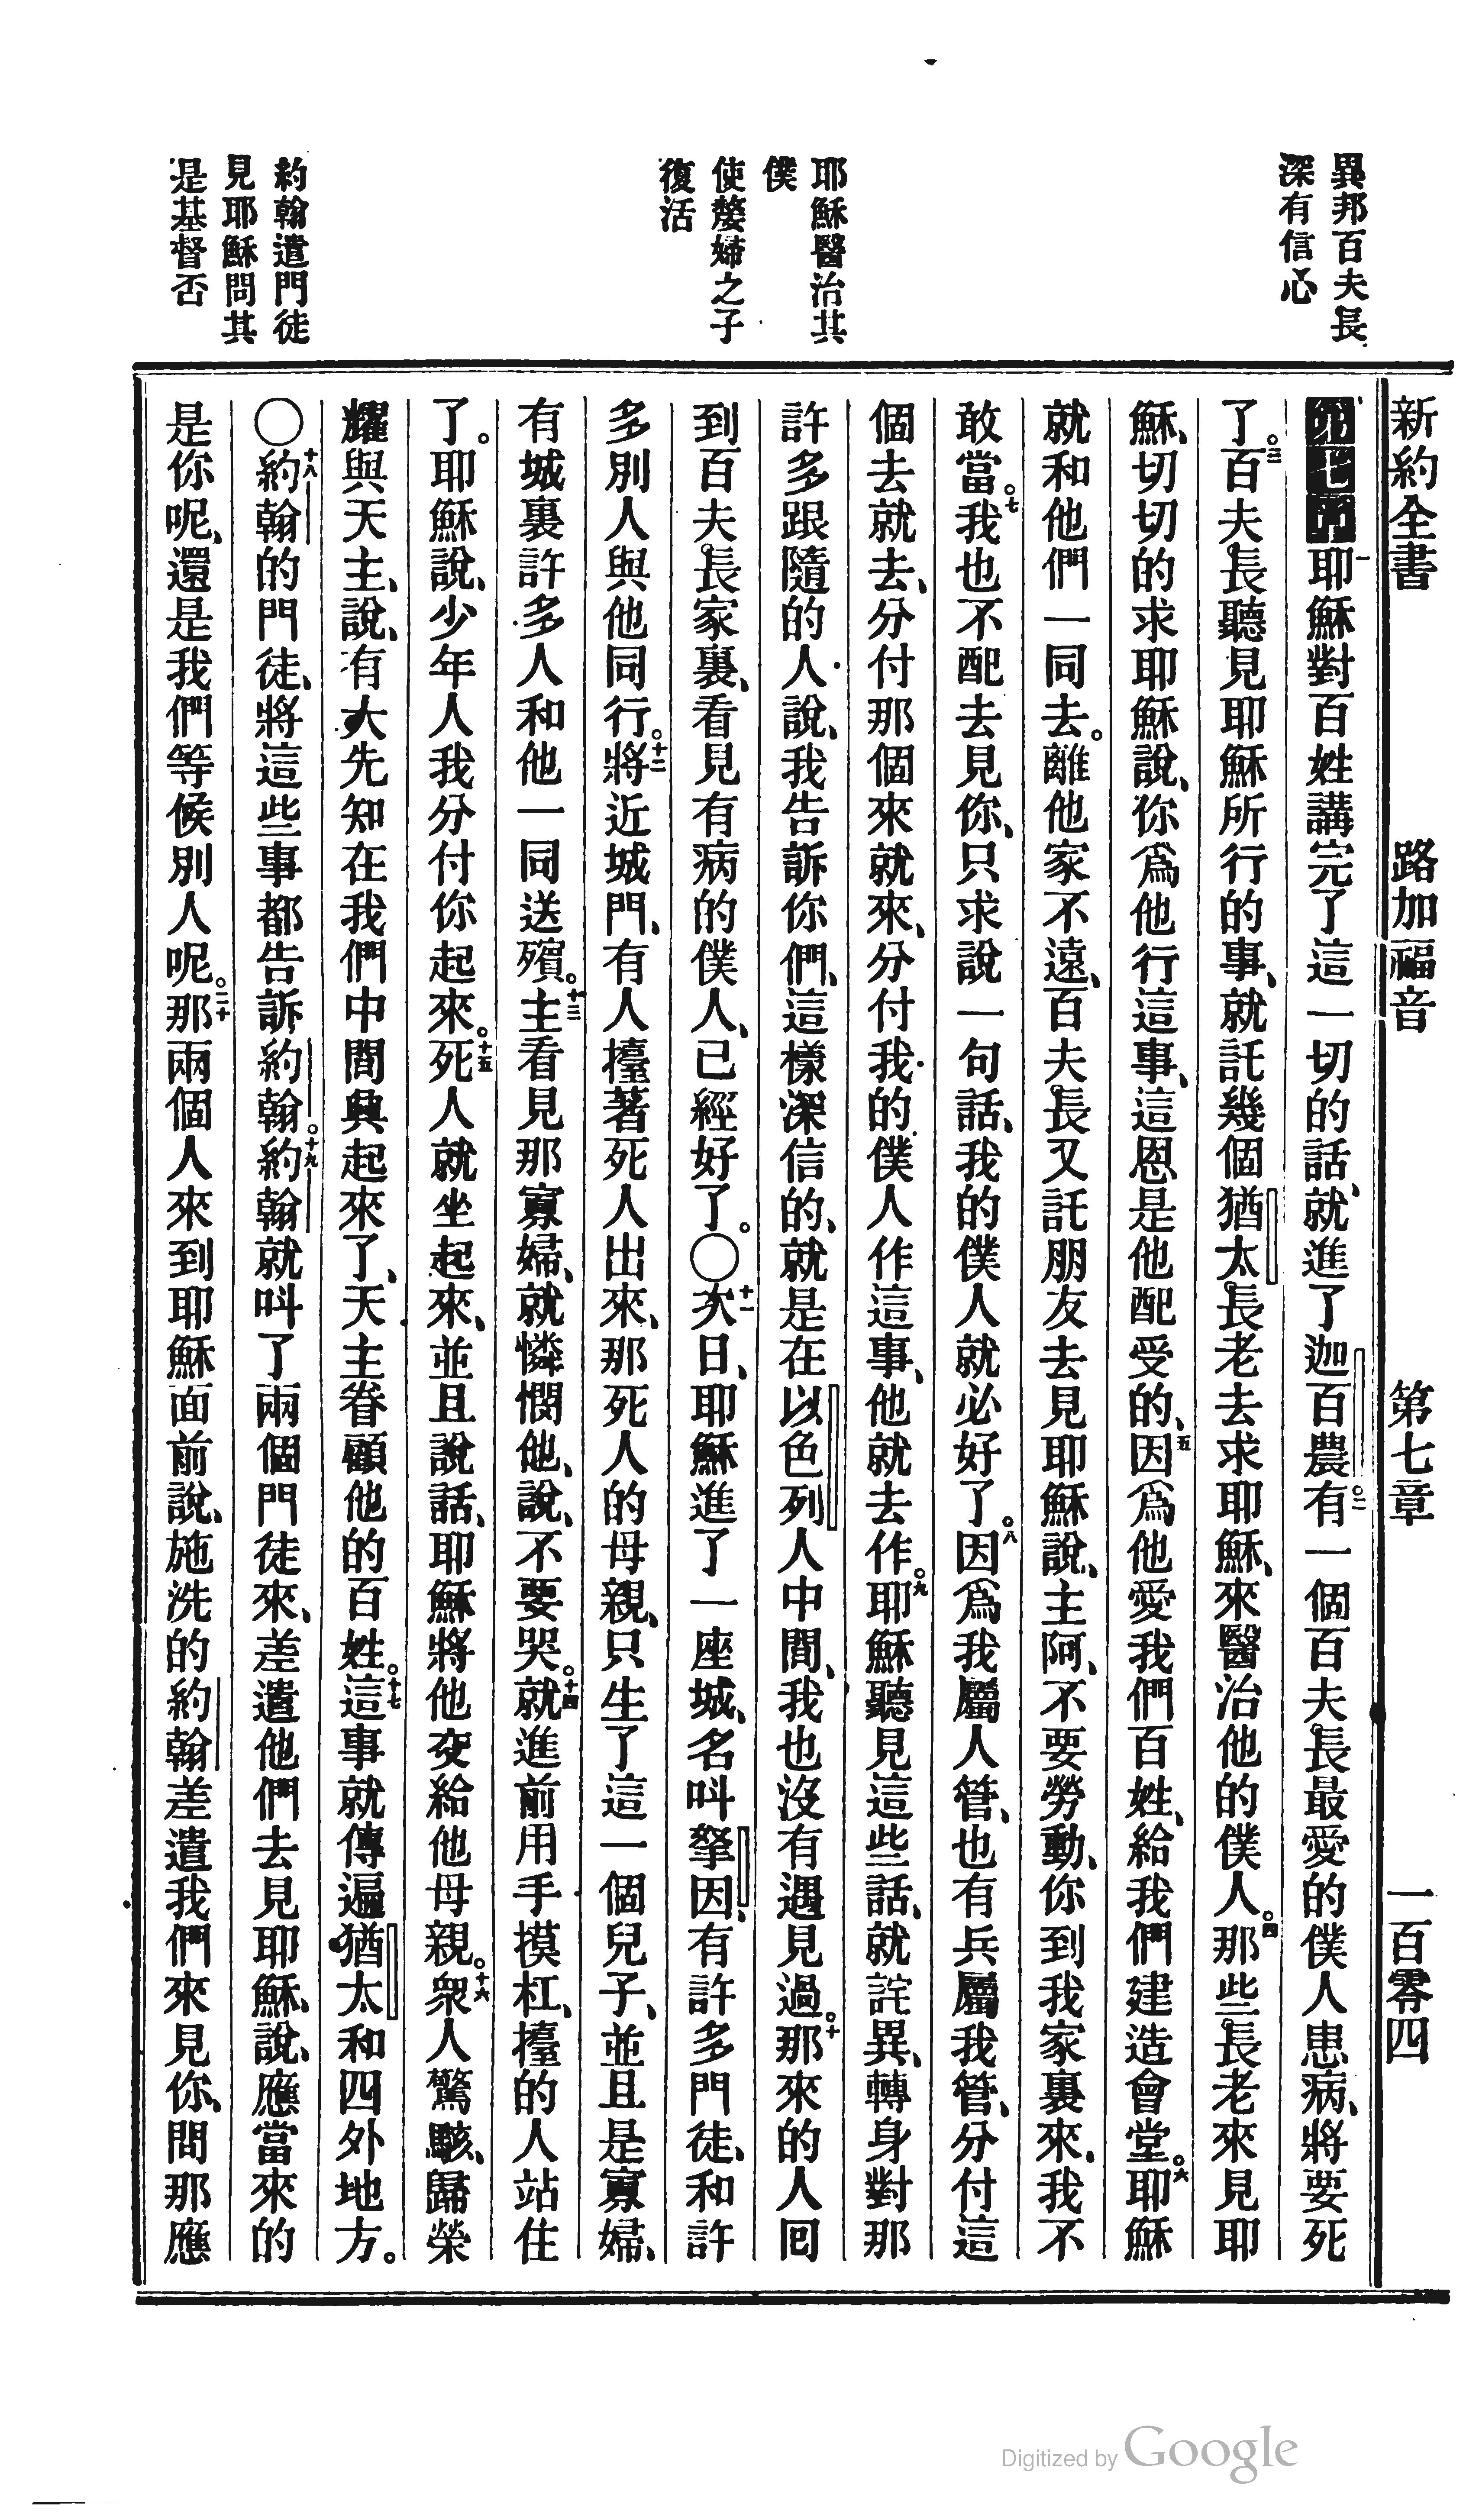 新約全書 路加福音 第七章 一百零四
異邦百夫長
深有信心
耶穌醫治其
僕
使嫠婦之子
復活
約翰遣門徒
見耶穌問其
是基督否
第七章一耶穌對百姓講完了這一切的話、就進了迦百農。二有一個百夫長最愛的僕人患病、將要死
了。三百夫長聽見耶穌所行的事、就託幾個猶太長老去求耶穌、來醫治他的僕人。四那些長老來見耶
穌、切切的求耶穌說、你爲他行這事、這恩是他配受的、五因爲他愛我們百姓、給我們建造會堂。六耶穌
就和他們一同去。離他家不遠、百夫長又託朋友去見耶穌說、主阿、不要勞動、你到我家裏來、我不
敢當。七我也不配去見你、只求說一句話、我的僕人就必好了。八因爲我屬人管、也有兵屬我管、分付這
個去就去、分付那個來就來、分付我的僕人作這事、他就去作。九耶穌聽見這些話、就詫異、轉身對那
許多跟隨的人說、我告訴你們、這樣深信的、就是在以色列人中間、我也沒有遇見過。十那來的人回
到百夫長家裏、看見有病的僕人、已經好了。〇十一次日、耶穌進了一座城、名叫拏因、有許多門徒、和許
多別人與他同行。十二將近城門、有人擡著死人出來、那死人的母親、只生了這一個兒子、並且是寡婦、
有城裏許多人和他一同送殯。十三主看見那寡婦、就憐憫他、說、不要哭。十四就進前用手摸杠、擡的人站住
了。耶穌說、少年人我分付你起來。十五死人就坐起來、並且說話、耶穌將他交給他母親。十六衆人驚駭、歸榮
耀與天主、說、有大先知在我們中間興起來了、天主眷顧他的百姓。十七這事就傳遍猶太和四外地方。
〇十八約翰的門徒、將這些事都告訴約翰。十九約翰就叫了兩個門徒來、差遣他們去見耶穌、說、應當來的
是你呢、還是我們等候別人呢。二十那兩個人來到耶穌面前說、施洗的約翰差遣我們來見你、問那應
Digitized by Google